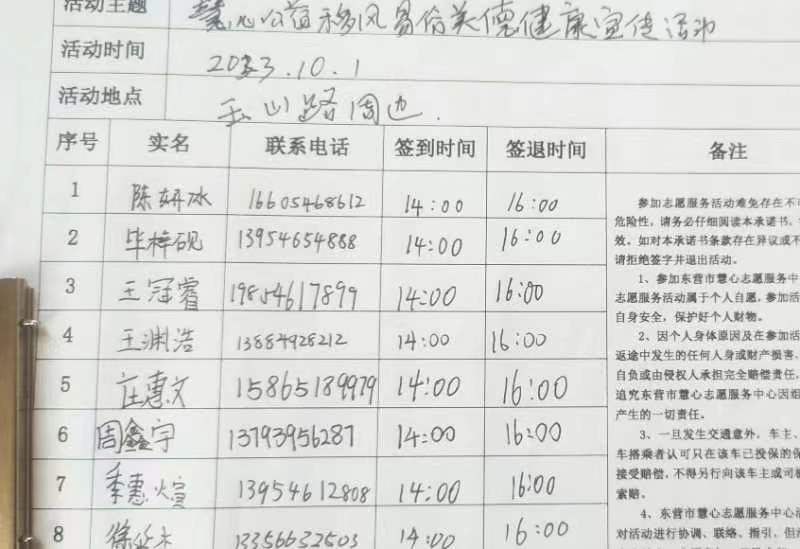 活动主题 慧心公益移风易俗美德健康宣传活动
活动时间 2023.10.1
活动地点 玉山路周边.
序号 实名 联系电话 签到时间 签退时间 备注
1 陈妍冰 16605468612 14:00 16:00
2 毕梓砚 13954654888 14:00 16:00
3 王冠睿 19854617899 14:00 16:00
4 王渊浩 13884928212 14:00 16:00
5 庄惠文 15865189979 14:00 16:00
6 周鑫宇 13793956287 14:00 16:00
7 季惠煊 13954612808 14:00 16:00
8 徐延杰 13356632503 14:00 16:00
参加志愿服务活动难免存在不可
危险性，请务必仔细阅读本承诺书，
效。如对本承诺书条款存在异议或不
请拒绝签字并退出活动。
1、参加东营市慧心志愿服务中
志愿服务活动属于个人自愿。参加活
自身安全，保护好个人财物。
2、因个人身体原因及在参加活
返途中发生的任何人身或财产损害，
自负或由侵权人承担完全赔偿责任，
追究东营市慧心志愿服务中心因组
产生的一切责任。
3、一旦发生交通意外，车主、
车搭乘者认可只在该车已投保的保
接受赔偿，不得另行向该车主或司
索赔。
4、东营市慧心志愿服务中心
对活动进行协调、联络、指引，但